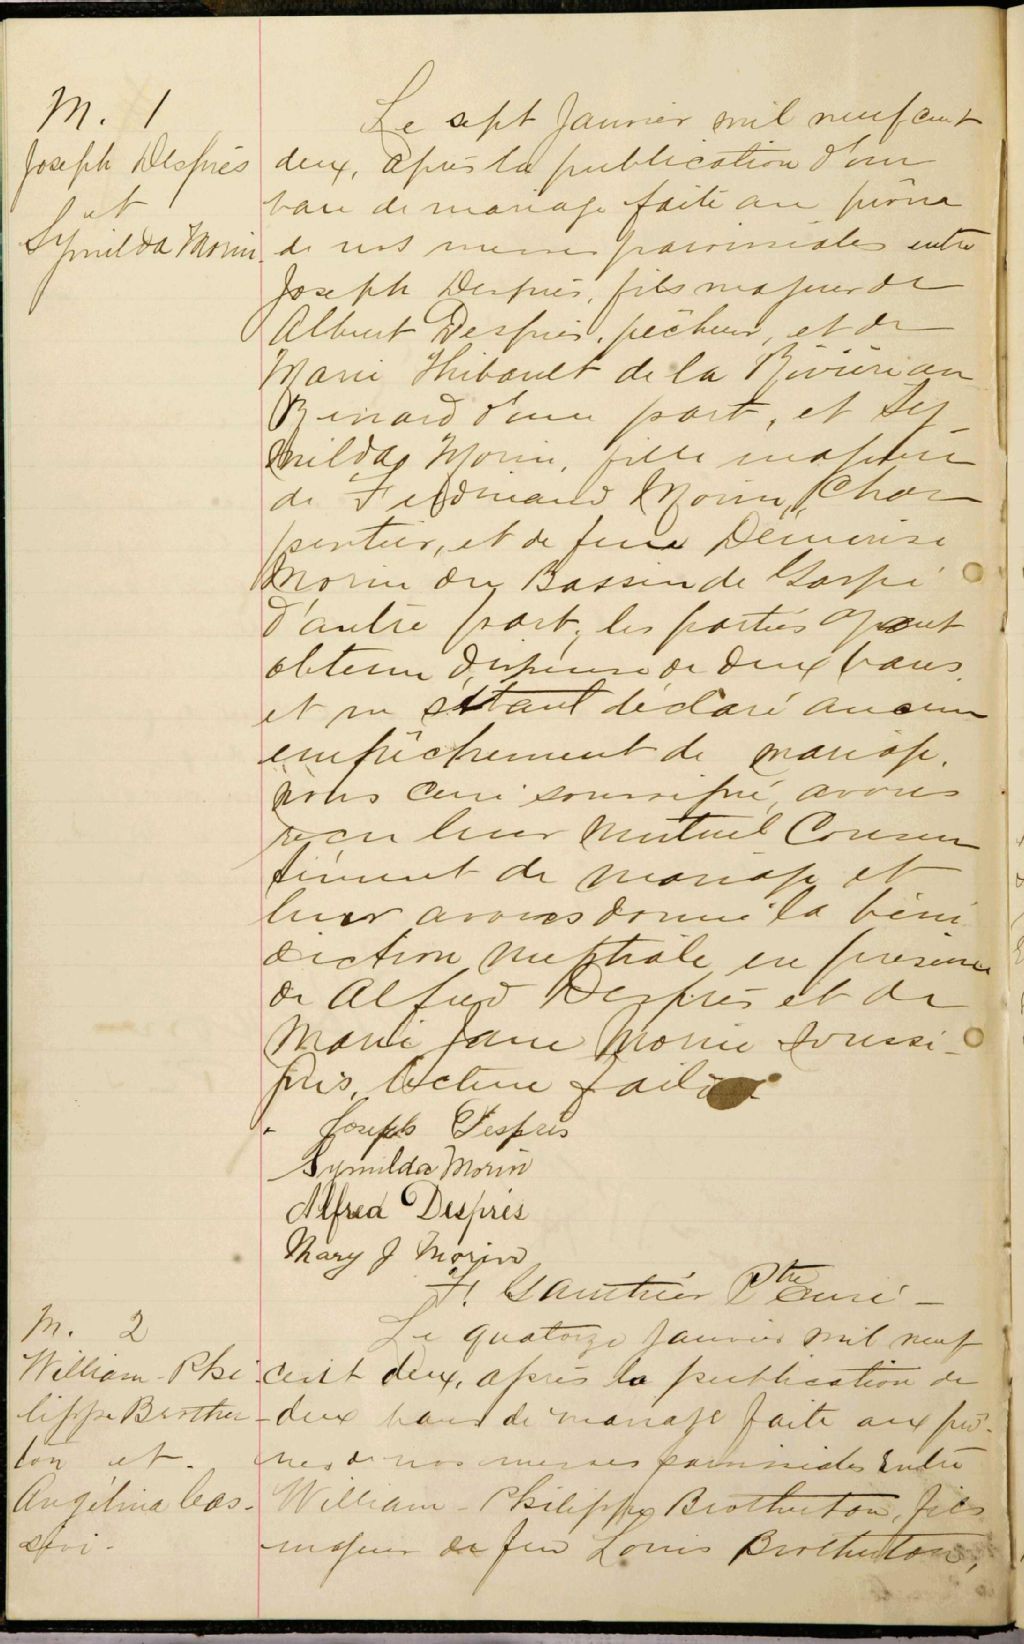 M. 1
Joseph Després
et
Symilda Morin
Le sept Janvier mil neuf cent
deux, après la publication d'un
banc de mariage faite au prône
de nos messes paroissiales entre
Joseph Després, fils majeur de
Albert Després, pêcheur, et de
Marie Thibault de la Rivière au
Renard d'une part, et Sy-
milda Morin, fille majeure
de Ferdinand Morin, Char
pentier, et de feue Démerise
Morin du Bassin de Gaspé
d'autre part, les parties ayant
obtenu dispense de deux bans
et ne s'étant déclaré aucun
empêchement de mariage,
nous curé soussigné, avons
reçu leur mutuel Consen
tement de mariage et
leur avons donné la béné
diction nuptiale en présence
de Alfred Després et de
Marie Jane Morin soussi-
gnés, lecture faite
Joseph Després
Symilda Morin
Alfred Després
Mary J Morin
F. Gauthier Ptre Curé -
M. 2
William-Phi
lippe Brother-
ton et
Angélina Cas-
sivi-
Le quatorze Janvier mil neuf
cent deux, après la publication de
deux bans de mariage faite aux prô-
nes de nos messes paroissiales Entre
William-Philippe Brotherton, fils
majeur de feu Louis Brotherton,